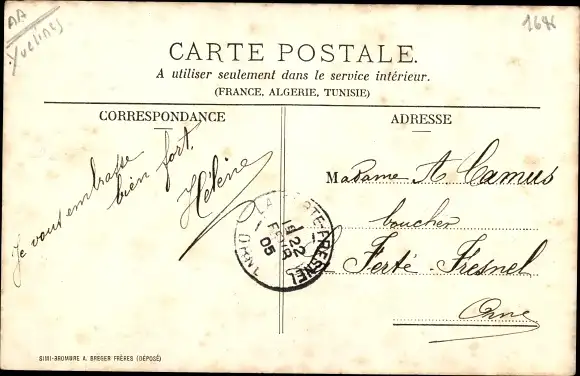 AA
Yvelines
CARTE POSTALE.
A utiliser seulement dans le service intérieur.
(FRANCE, ALGERIE, TUNISIE)
CORRESPONDANCE
ADRESSE
Je vous embrasse
bien fort.
Hélène
Madame A Camus
boucher
Ferté-Fresnel
Orne
LA FERTE-FRESNEL
22
FEVR
05
ORNE
SIMI-BROMURE A. BREGER FRÈRES (DÉPOSÉ)